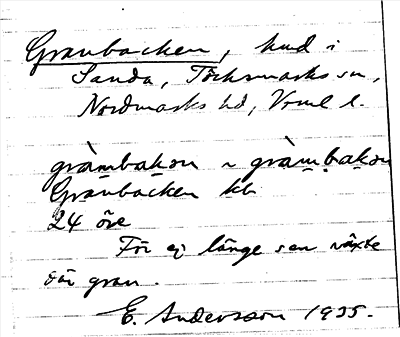 Granbacken, hmd i
Sanda, Töcksmarks sn,
Nordmarks hd, Vrml l.
gràmbakən ~ gràmbakən
Granbacken kb
24 öre
För ej länge sen växte
där gran.
E. Andersson 1935.